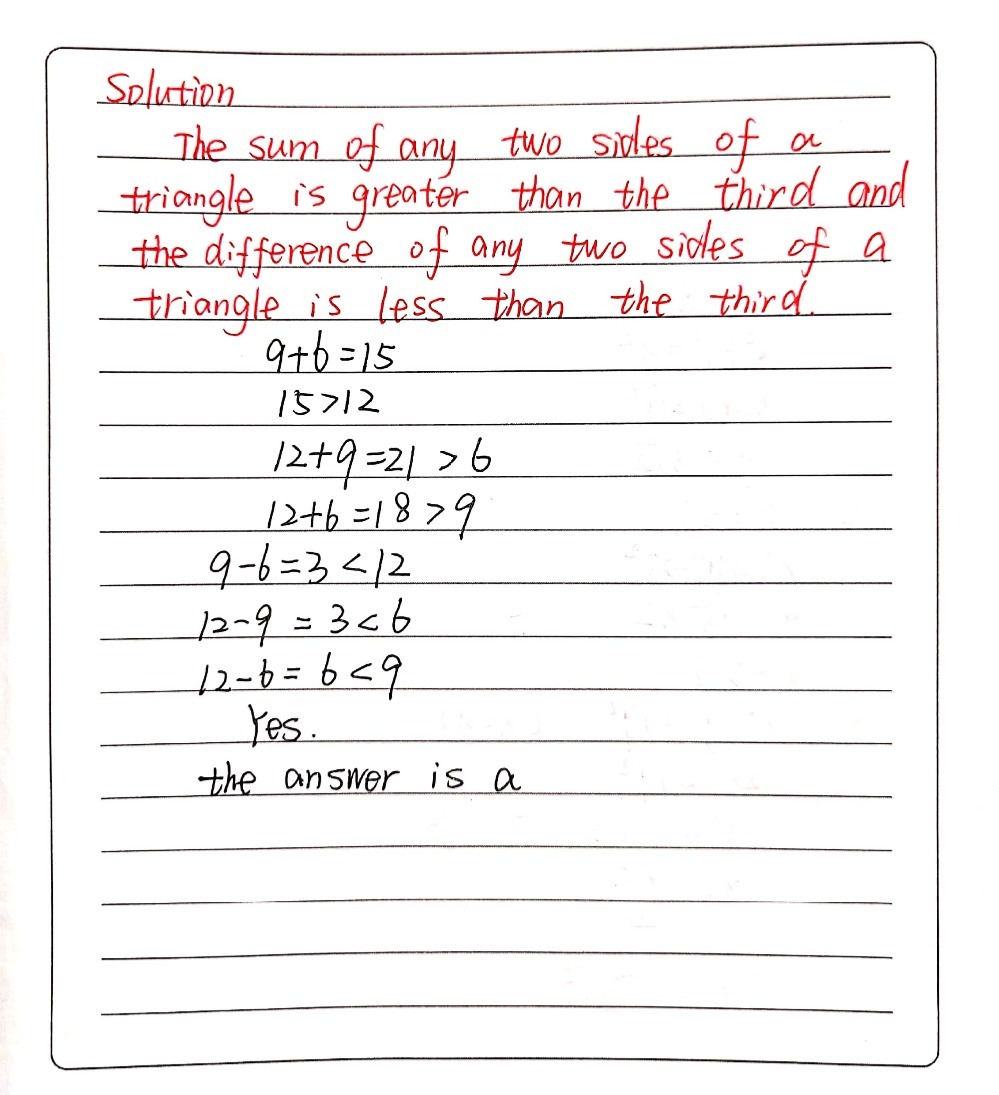 Solution
The sum of any two sides of a
triangle is greater than the third and
the difference of any two sides of a
triangle is less than the third.
9+6=15
15>12
12+9=21 >6
12+6=18>9
9-6=3<12
12-9=3<6
12-6=6<9
Yes.
the answer is a